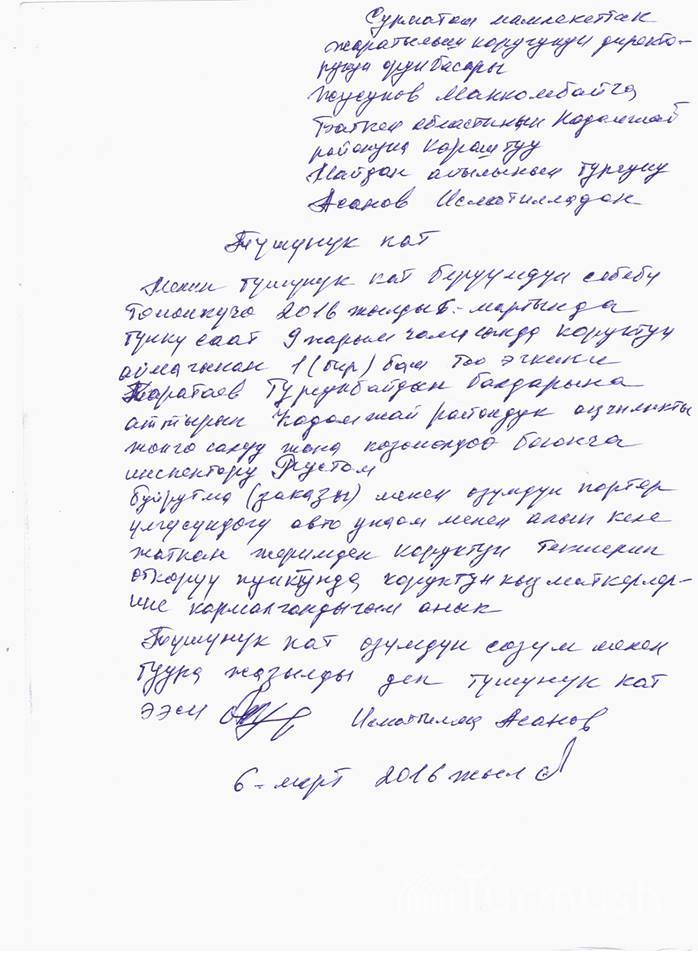 Сурматаш мамлекеттик
жаратылыш коругунун директо-
рунун орун басары
Жусупов Маккамбайга
Баткен областынын Кадамжай
районуна караштуу
Майдан айылынын тургуну
Асанов Исматилладан
Тушунук кат
Менин тушунук кат беруумдун себеби
2016 жылдын 6-мартында
тунку саат 9 жарым чамасында коруктун
аймагынан 1 (бир) баш тоо эчкини
Таратаев Турдунбайдын балдарына
аттырып Кадамжай райондук аңчылыкты
жонго салуу жана козомолдоо боюнча
инспектору Рустам
буйрутма (заказы) менен озумдун портер
улгусундогу авто унаам менен алып келе
жаткан жеримден коруктун текшерип
откоруу пунктунда коруктун кызматкерлер-
ине кармалгандыгым анык
Тушунук кат озумдун созум менен
туура жазылды деп тушунук кат
ээси Исматилла Асанов
6-март 2016 жыл
Turmush